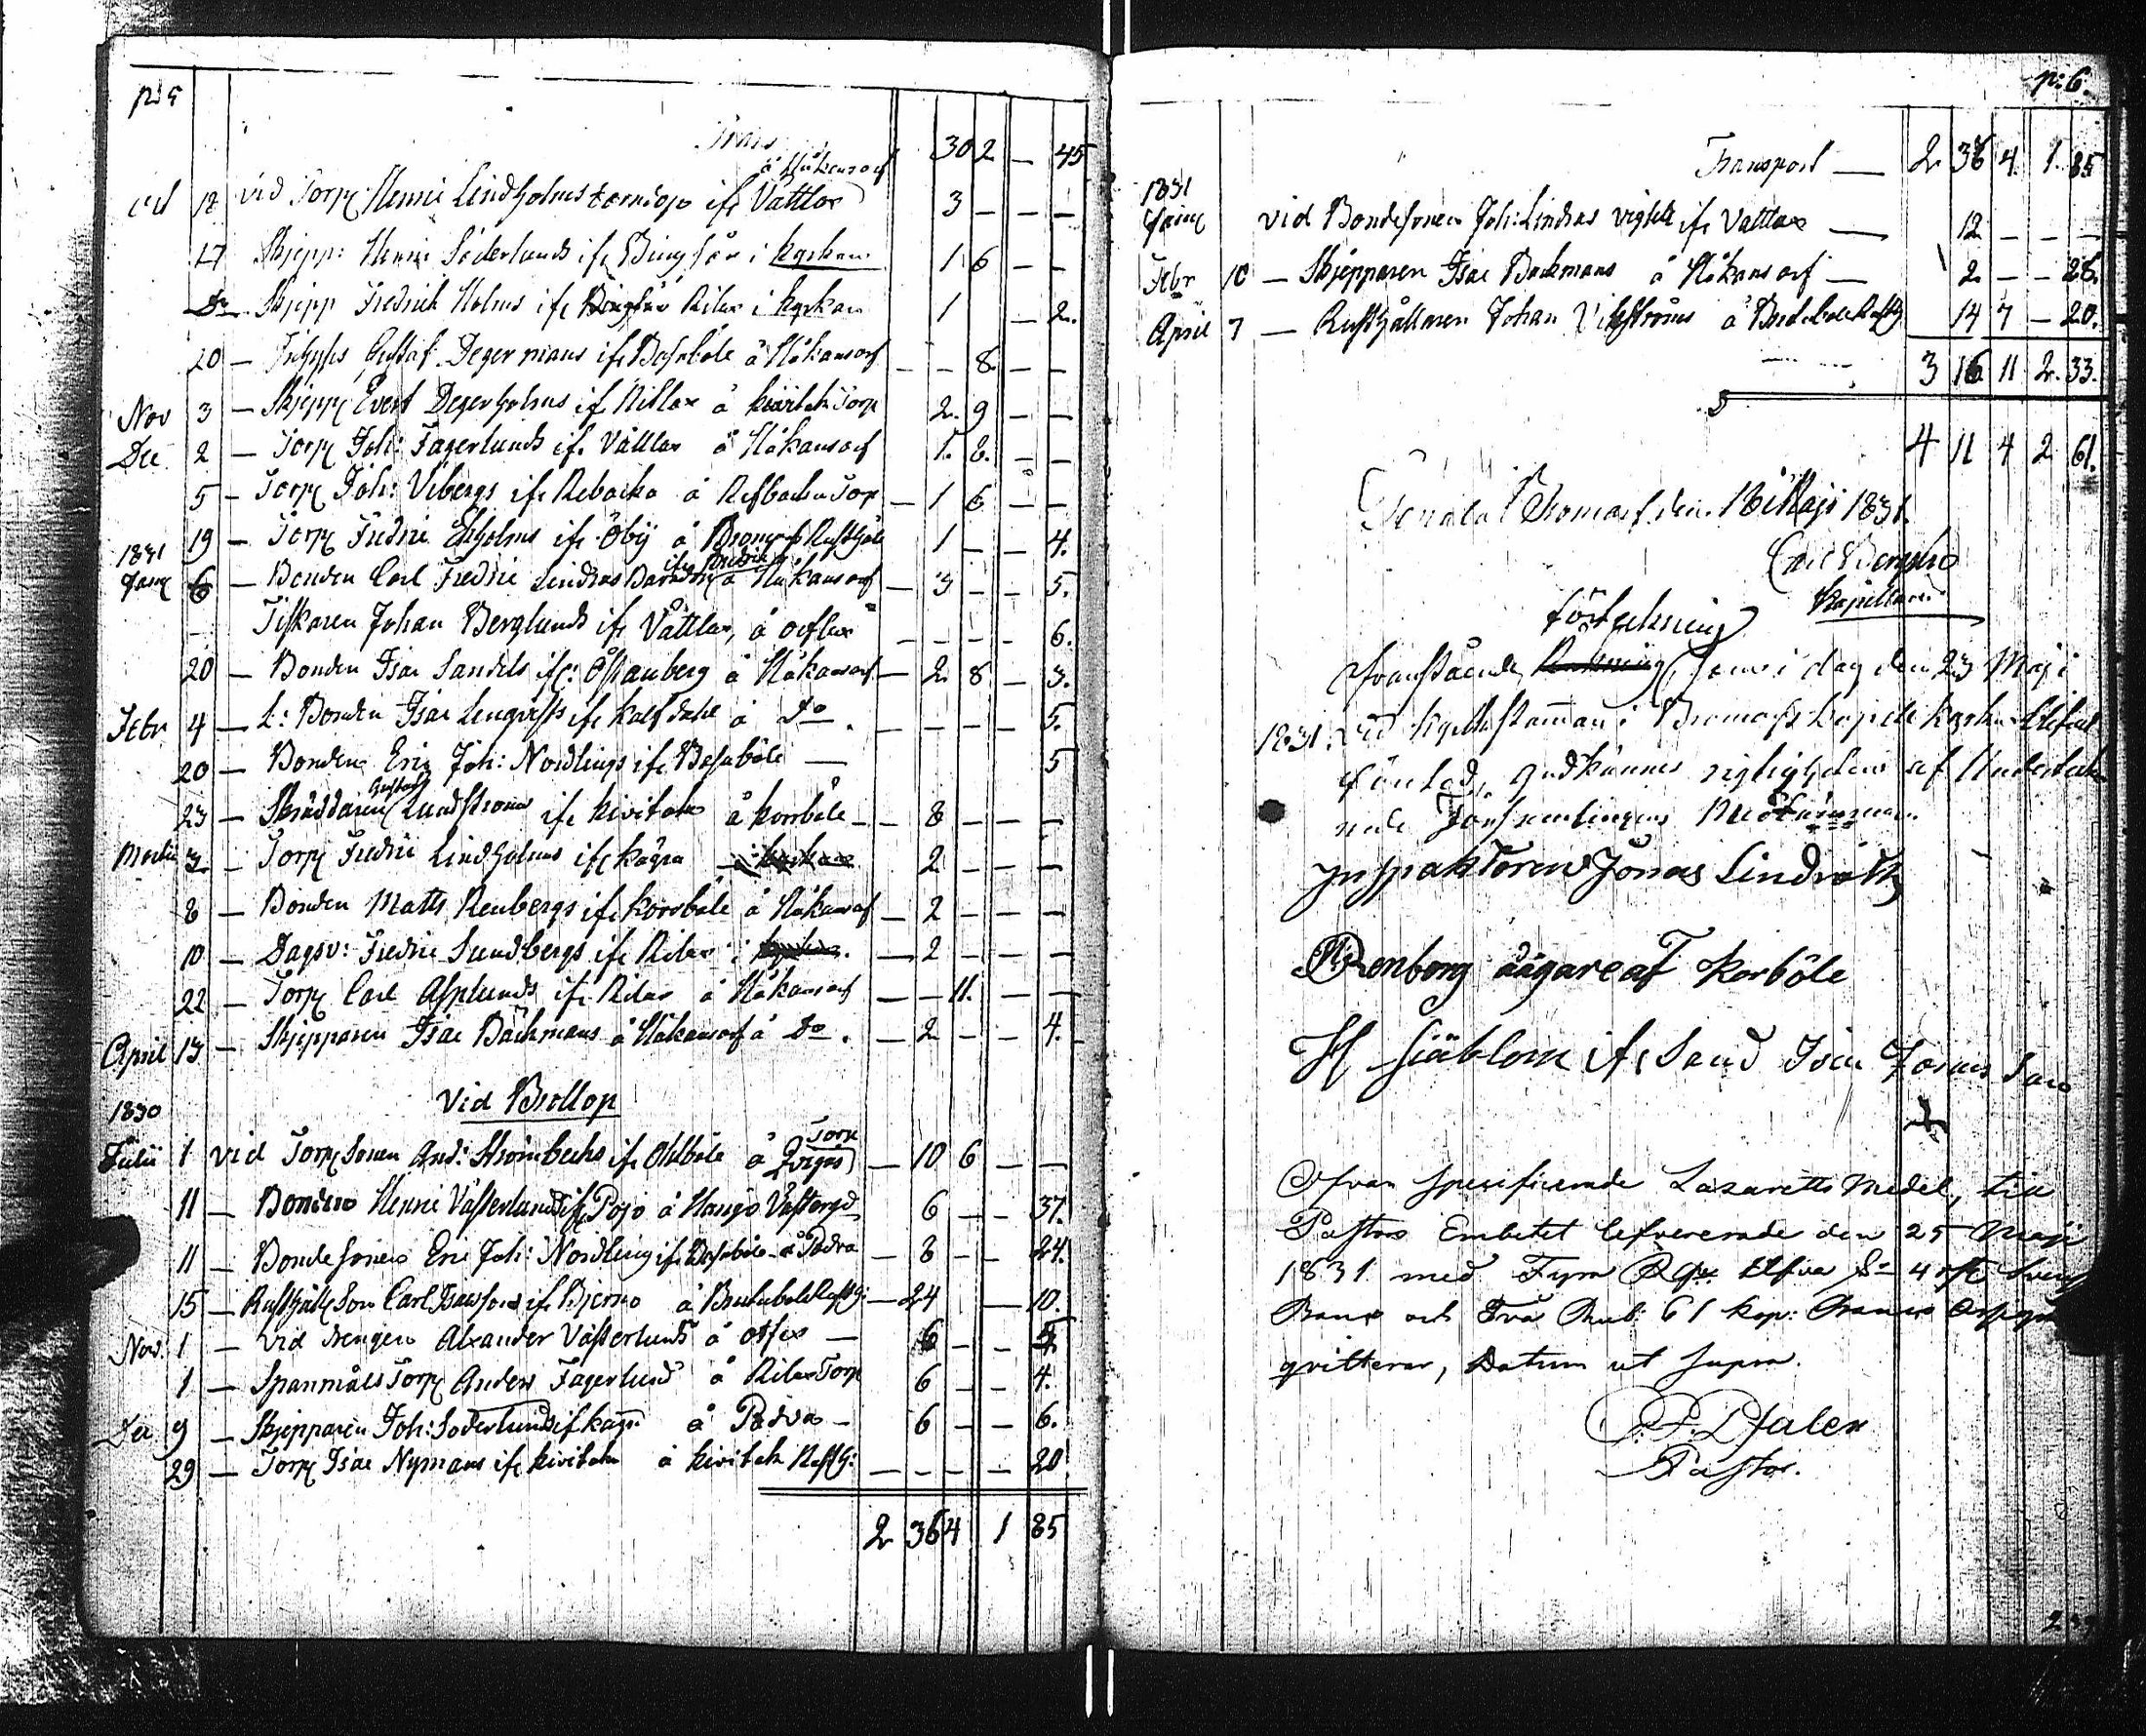 p: 5
Trans 30 2 — 45
å Håkansarf
18 vid Torp: Henric Lindholms barndop ifr Vättlax 3 — — —
17 Skjepp: Henric Söderlunds ifr Bingsör i kyrkan 1 6 — —
Do Skjepp Fredrik Holms ifr Rilax i kyrkan 1 — 2.
20 — Gustaf Degermans ifr Basaböle å Håkansarf — — 8. — —
Nov 3 — Skjepp Evert Degerholms ifr Rillax å kivitok Torp 2. 9 — —
Dec 2 — Torp Joh: Fagerlunds if. Vättlax å Håkansarf 1. 8. — —
5 — Torp Joh: Vibergs ifr Rebacka å Refbacka Torp — 1 6 — —
19 — Torp Fredric Ekholms ifr Öby å Bromarf Rusthåll 1 — — 4.
1831
Janu 6 — Bonden Carl Fredric Lindros å Håkansarf — 3 — — 5.
Fiskaren Johan Berglunds ifr Vättlax, å — — — — 6.
20 — Bonden Isac Sandels ifr: Östanberg å Håkansarf — 2. 8 — 3.
Febr 4 — L: Bonden Isac Lenqvists ifr Kalfdahl å Do. — — — — 5.
20 — Bonden Eric Joh: Nordlings ifr Basaböle — 5
Gustaf
23 — Skräddaren Lundströms ifr kivitok å korsböle — — 8 — — —
Martii 3. — Torp Fredric Lindholms ifr kagra 2 — — —
8 — Bonden Matts Renbergs ifr korsböle å Håkansarf — 2 — — —
10 — Dagsv: Fredric Sundbergs ifr Rilax i — 2 — — —
22 — Torp Carl Asplunds ifr Rilax å Håkansarf — — 11. — —
April 13 — Skjepparen Isac Bäckmans å Håkansarf å Do. — 2 — — 4.
Vid Bröllop
1830
Torp
Julii 1 vid Torp Sonen And: Strömbecks ifr Ohlböle å — 10 6 — —
11 — Bonden Henric Västerlunds ifr Pojo å Hangö Västergd 6 — — 37.
11 — Bonde Sonens Eric Joh: Nordling ifr Basaböle å Padva — 8 — — 24.
15 — Rusthålls Son Carl Isacsons ifr Bjerno å Bredeböle Rusth: — 24 — 10.
Nov. 1 — vid drengen Alexander Västerlunds å — 6 — — 5
1 — Spanmåls Torp Anders Fagerlund å Rilax Torp 6 — — 4.
Dec 9 — Skjepparen Joh: Söderlunds if kagra å Padva — 6 — — 6.
29 — Torp Isac Nymans ifr kivitok å kivitok Rusth: — — — — 20
2 36 4 1 85
p: 6.
Transport — 2 36 4. 1. 85
1831
Janu vid Bondesonen Joh: Lindros vigsel ifr Vättlax — 12 — — —
Febr 10 — Skjepparen Isac Backmans å Håkansarf — 2 — — 28.
April 7 — Rusthållaren Johan Vikströms å Bredeböle Rusth 14 7 — 20.
3 16 11 2. 33.
4 11 4 2 61.
Tenala Bromarf den 18 Maji 1831.
Kapellan
förtekning
Ofvanstående Räkning som i dag den 23 Maji
1831. vid kyrkostämman i Bromarfs kapell kyrka blifvit
föreled, godkännes rigtigheten af Underteck
nade Församlingens Medlemmar.
Inspaktoren Jonas Lindroth
Renborg äägare af Korböle
H Sjöblom ifr Sand Isac Jonas Son
Ofvan specificerade Lazaretts Medel, till
Pastors Embetet lefvererade den 25 Maji
1831 med Fyra Rdr Elfva S: 4 rst Svensk
Banco och Två Rub: 61 kop: Banco Assign
qvitterar, Datum ut Supra.
Pastor.